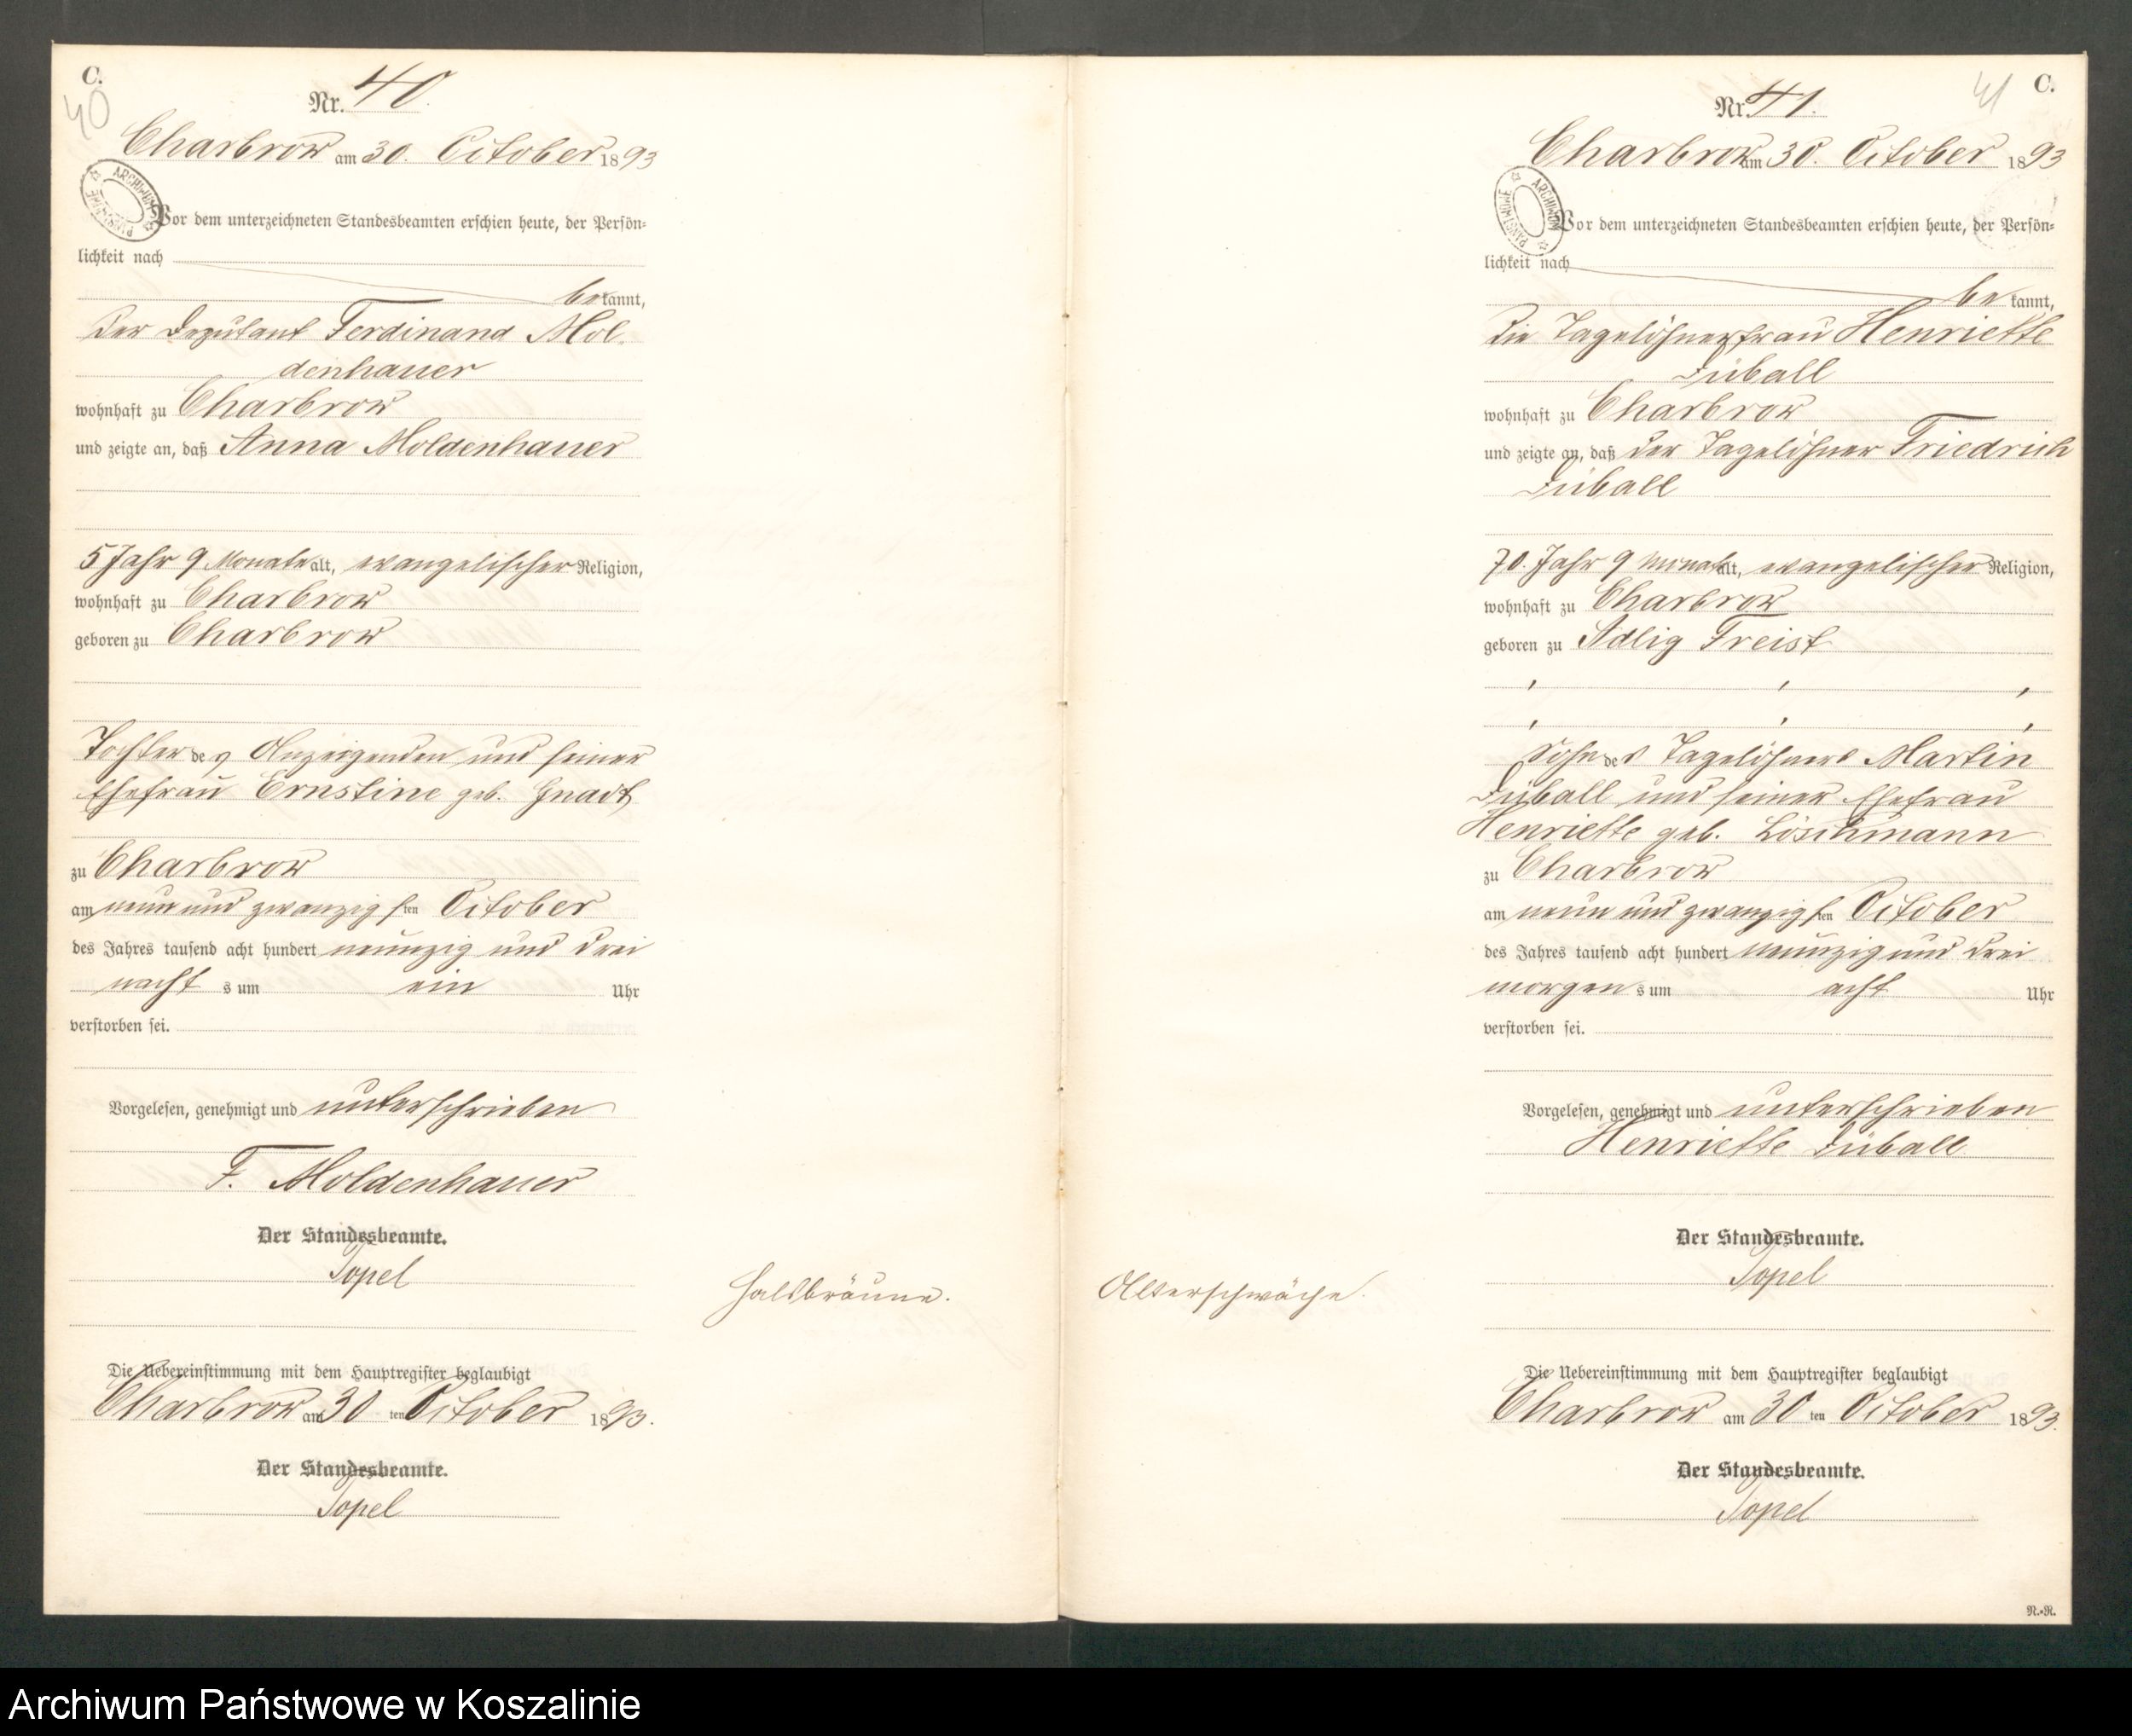 C.
40
Nr. 40.
Charbrow am 30. October 1893
ARCHIWUM PAŃSTWOWE
Vor dem unterzeichneten Standesbeamten erschien heute, der Persön-
lichkeit nach
bekannt,
der Deputant Ferdinand Mol-
denhauer
wohnhaft zu Charbrow
und zeigte an, daß Anna Moldenhauer
5 Jahr 9 Monate alt, evangelischer Religion,
wohnhaft zu Charbrow
geboren zu Charbrow
Tochter des Anzeigenden und seiner
Ehefrau Ernstine geb. Gnadt
zu Charbrow
am neun und zwanzigsten October
des Jahres tausend acht hundert neunzig und drei
nachts um ein Uhr
verstorben sei.
Vorgelesen, genehmigt und unterschrieben
F. Moldenhauer
Der Standesbeamte.
Topel
Halsbräune.
Die Uebereinstimmung mit dem Hauptregister beglaubigt
Charbrow am 30 ten October 1893.
Der Standesbeamte.
Topel
C.
41
Nr. 41.
Charbrow am 30. October 1893
ARCHIWUM PAŃSTWOWE
Vor dem unterzeichneten Standesbeamten erschien heute, der Persön-
lichkeit nach
bekannt,
die Tagelöhnerfrau Henriette
Düball
wohnhaft zu Charbrow
und zeigte an, daß der Tagelöhner Friedrich
Düball
70. Jahr 9 Monat alt, evangelischer Religion,
wohnhaft zu Charbrow
geboren zu Adlig Freist
Sohn des Tagelöhners Martin
Düball und seiner Ehefrau
Henriette geb. Löschmann
zu Charbrow
am neun und zwanzigsten October
des Jahres tausend acht hundert neunzig und drei
morgens um acht Uhr
verstorben sei.
Vorgelesen, genehmigt und unterschrieben
Henriette Düball
Der Standesbeamte.
Topel
Alterschwäche.
Die Uebereinstimmung mit dem Hauptregister beglaubigt
Charbrow am 30 ten October 1893.
Der Standesbeamte.
Topel
R.-R.
Archiwum Państwowe w Koszalinie